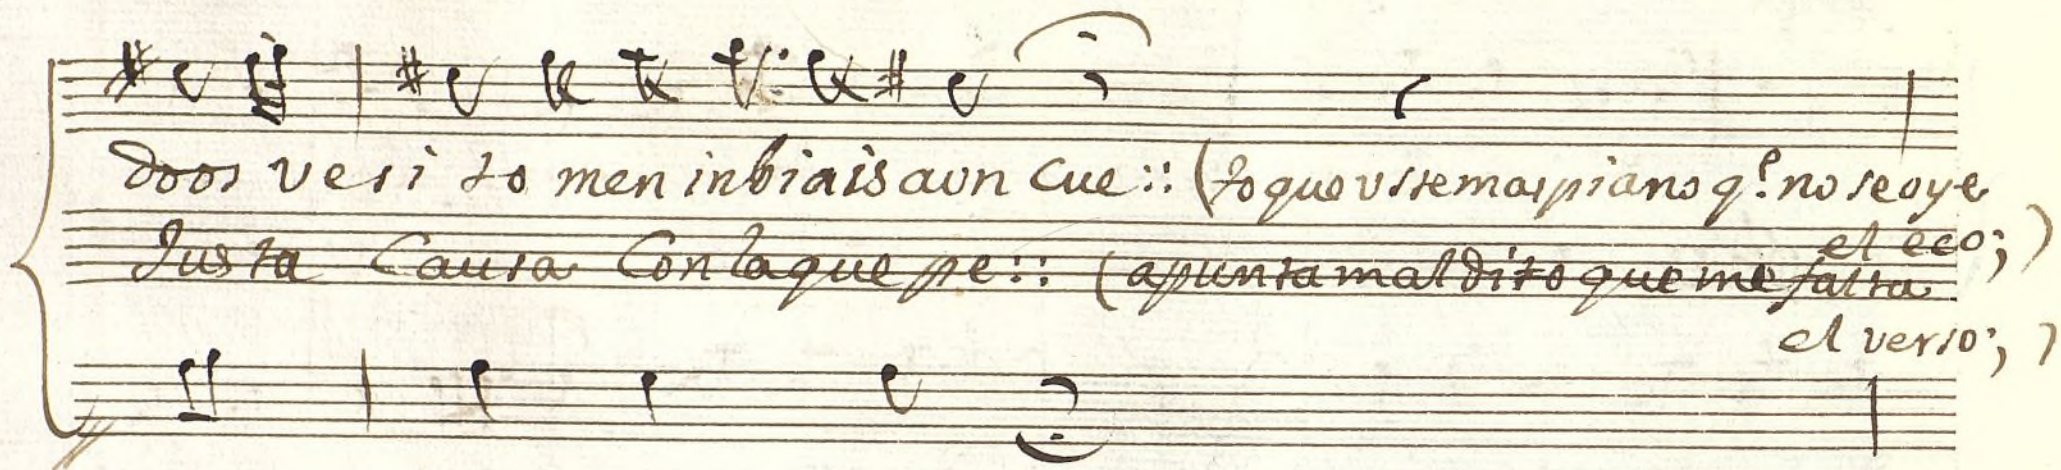 doos verito men inbiais aon cue:: (toque vste mas piano q.e no se oye
el eco;)
Justa Causa Con la que pe:: (apunta maldito que me falta
el verso;)